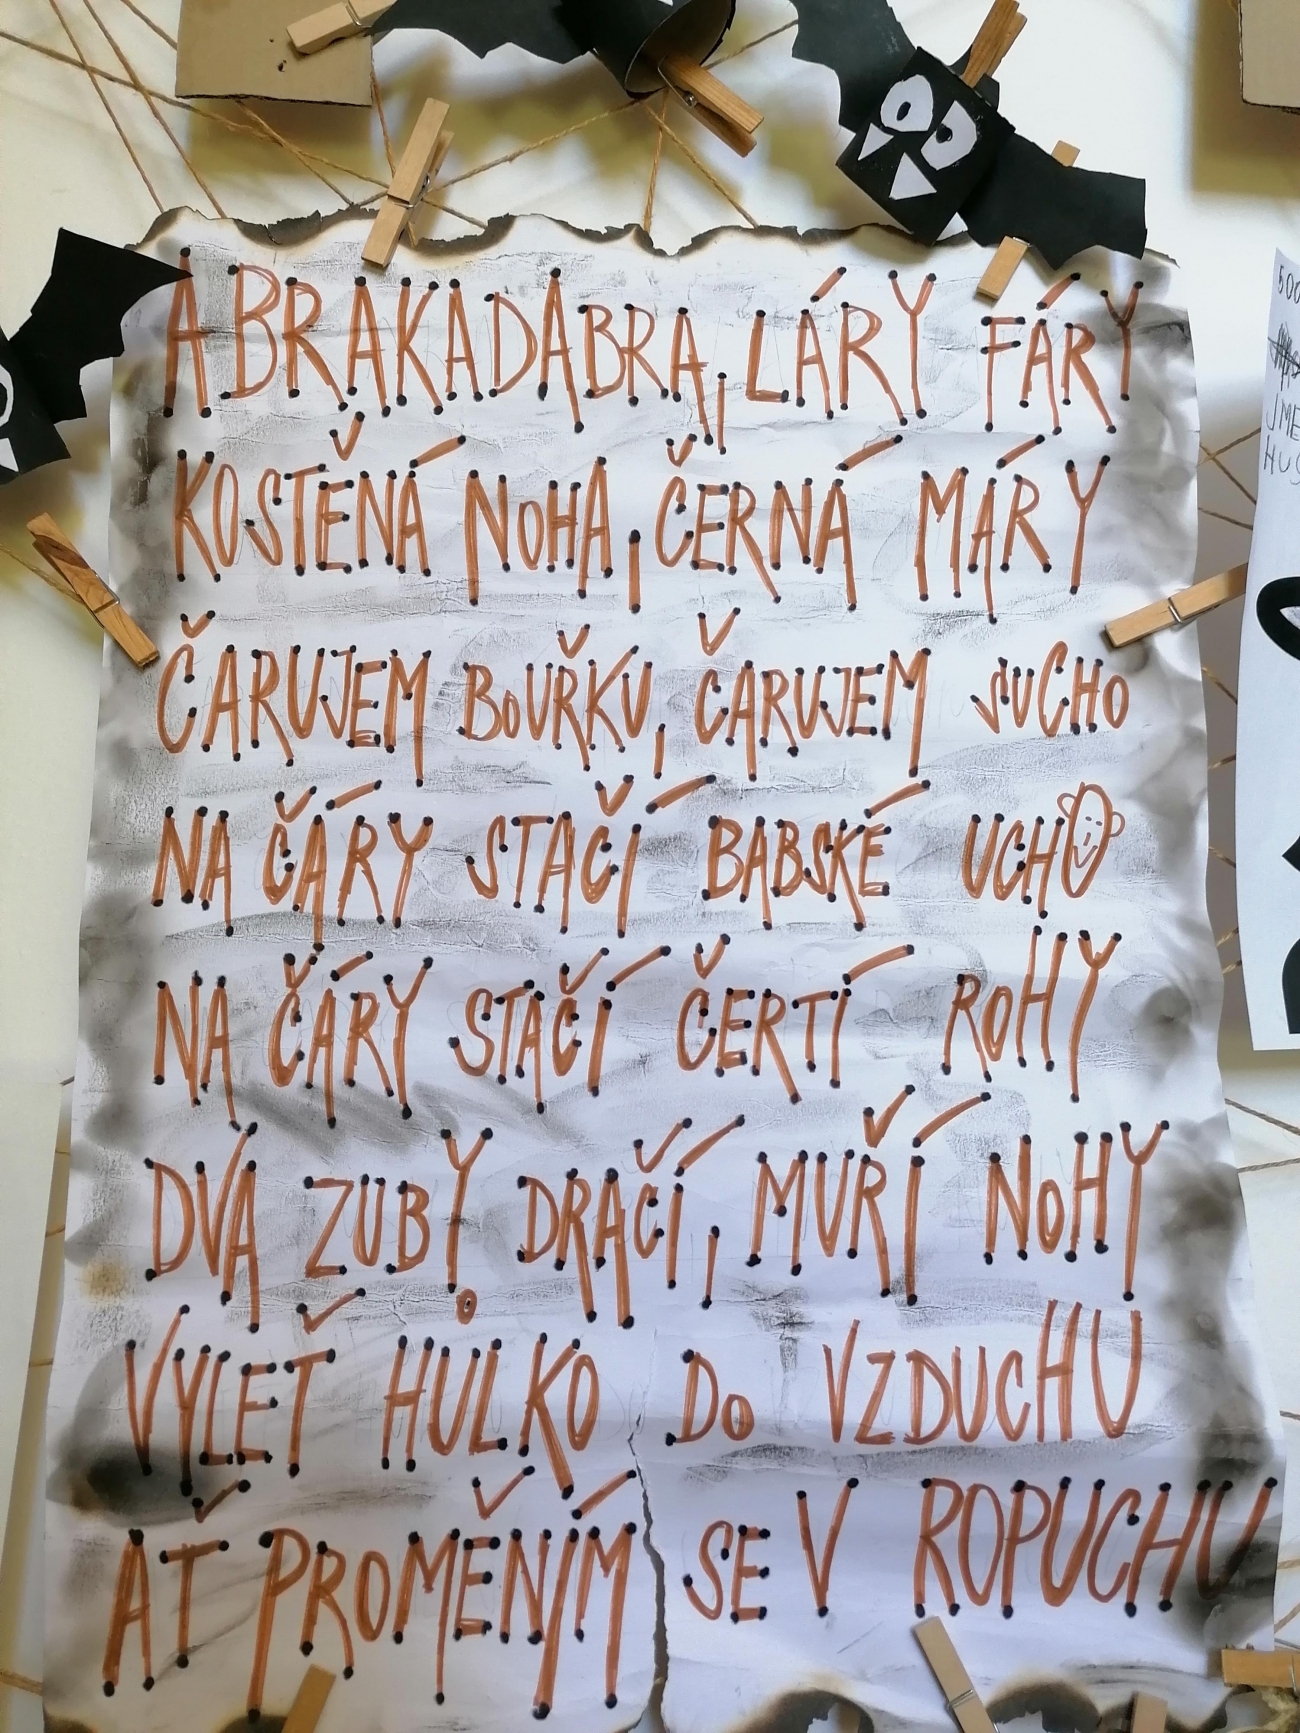 ABRAKADABRA, LÁRY FÁRY
KOSTĚNÁ NOHA, ČERNÁ MÁRY
ČARUJEM BOUŘKU, ČARUJEM SUCHO
NA ČÁRY STAČÍ BABSKÉ UCHO
NA ČÁRY STAČÍ ČERTÍ ROHY
DVA ZUBY DRAČÍ, MUŘÍ NOHY
VYLEŤ HŮLKO DO VZDUCHU
AŤ PROMĚNÍM SE V ROPUCHU